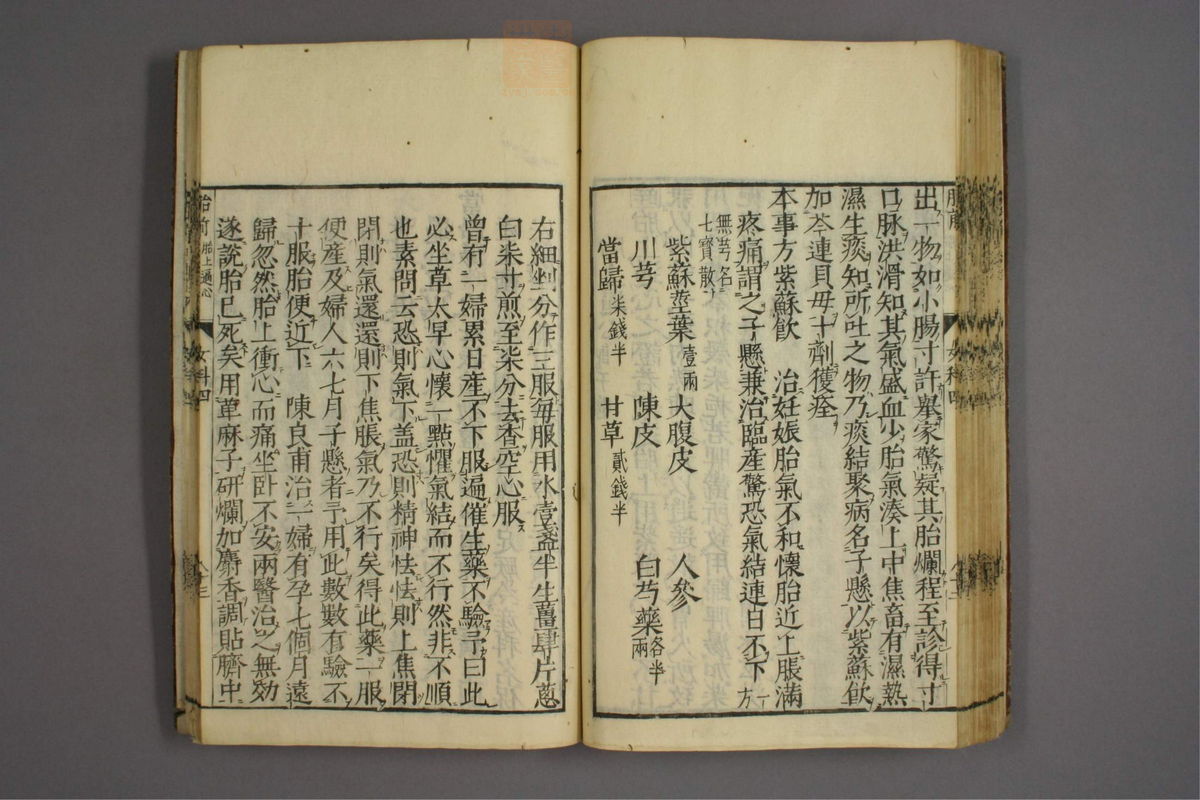 出一物如小腸寸許舉家驚疑其胎爛程至診得寸
口脉洪滑知其氣盛血少胎氣湊上中焦畜有濕熱
濕生痰知所吐之物乃痰結聚病名子懸以紫蘇飲
加芩連貝母十劑獲痊
本事方紫蘇飲 治妊娠胎氣不和懷胎近上脹滿
疼痛謂之子懸兼治臨產驚恐氣結連日不下 一方
無芎名
七寳散
紫蘇莖葉壹兩 大腹皮 人參
川芎 陳皮 白芍藥各半兩
當歸柒錢半 甘草貳錢半
右細剉分作三服每服用水壹盞半生薑肆片蔥
白柒寸煎至柒分去查空心服
曾有一婦累日產不下服遍催生藥不驗予曰此
必坐草太早心懷一點懼氣結而不行然非不順
也素問云恐則氣下盖恐則精神怯怯則上焦閉
閉則氣還還則下焦脹氣乃不行矣得此藥一服
便產及婦人六七月子懸者予用此數數有驗不
十服胎便近下 陳良甫治一婦有孕七個月遠
歸忽然胎上衝心而痛坐卧不安兩醫治之無効
遂說胎已死矣用萆麻子研爛加麝香調貼臍中
胎前 胎上逼心 女科四 八十三